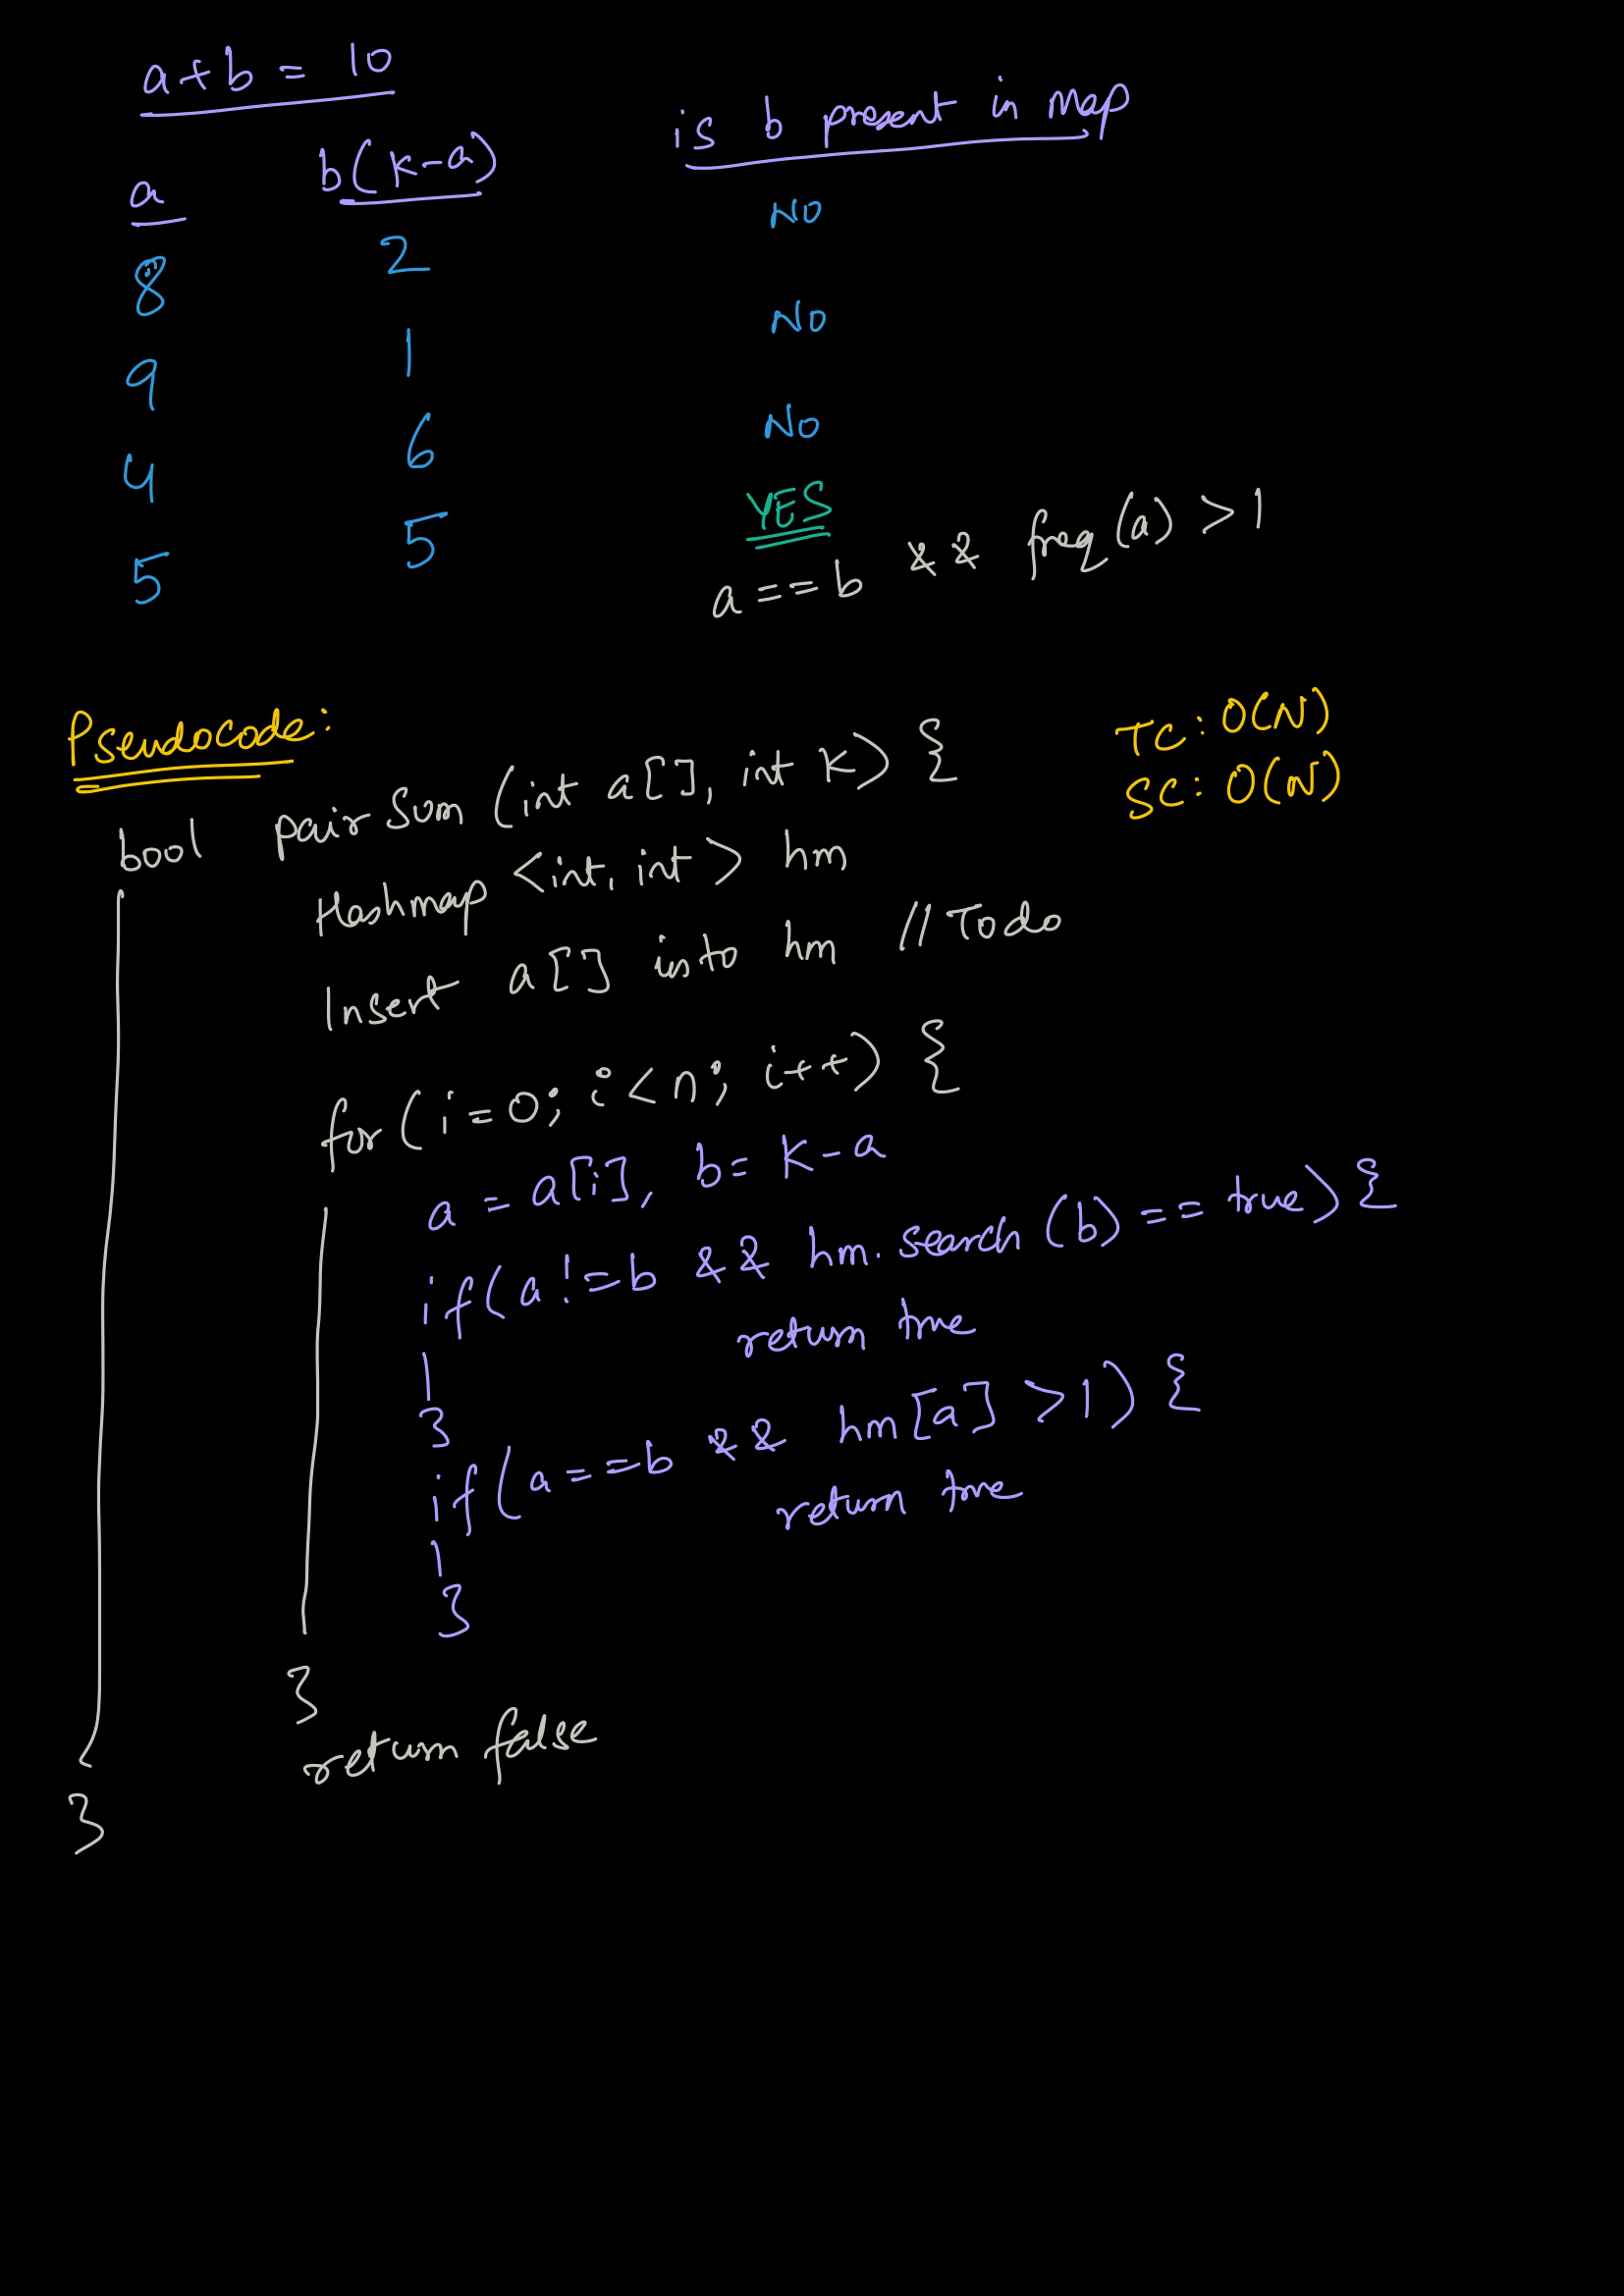 a+b = 10
a b(k-a) is b present in map
8 2 NO
9 1 NO
4 6 NO
5 5 YES
a==b && freq(a) >1
Pseudocode:
TC: O(N)
SC: O(N)
bool pairSum (int a[], int k) {
Hashmap <int, int> hm
Insert a[] into hm //Todo
for( i=0; i<n; i++) {
a = a[i], b= k-a
if(a!=b && hm.search(b) == true) {
return true
}
if(a==b && hm[a] >1) {
return true
}
}
return false
}